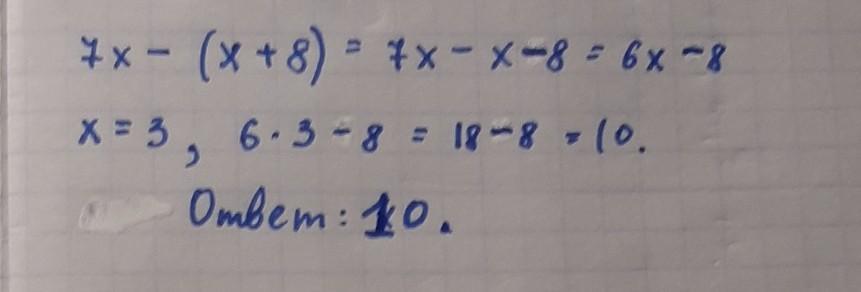 7x - (x + 8) = 7x - x - 8 = 6x - 8
x = 3, 6 · 3 - 8 = 18 - 8 = 10.
Ответ: 10.